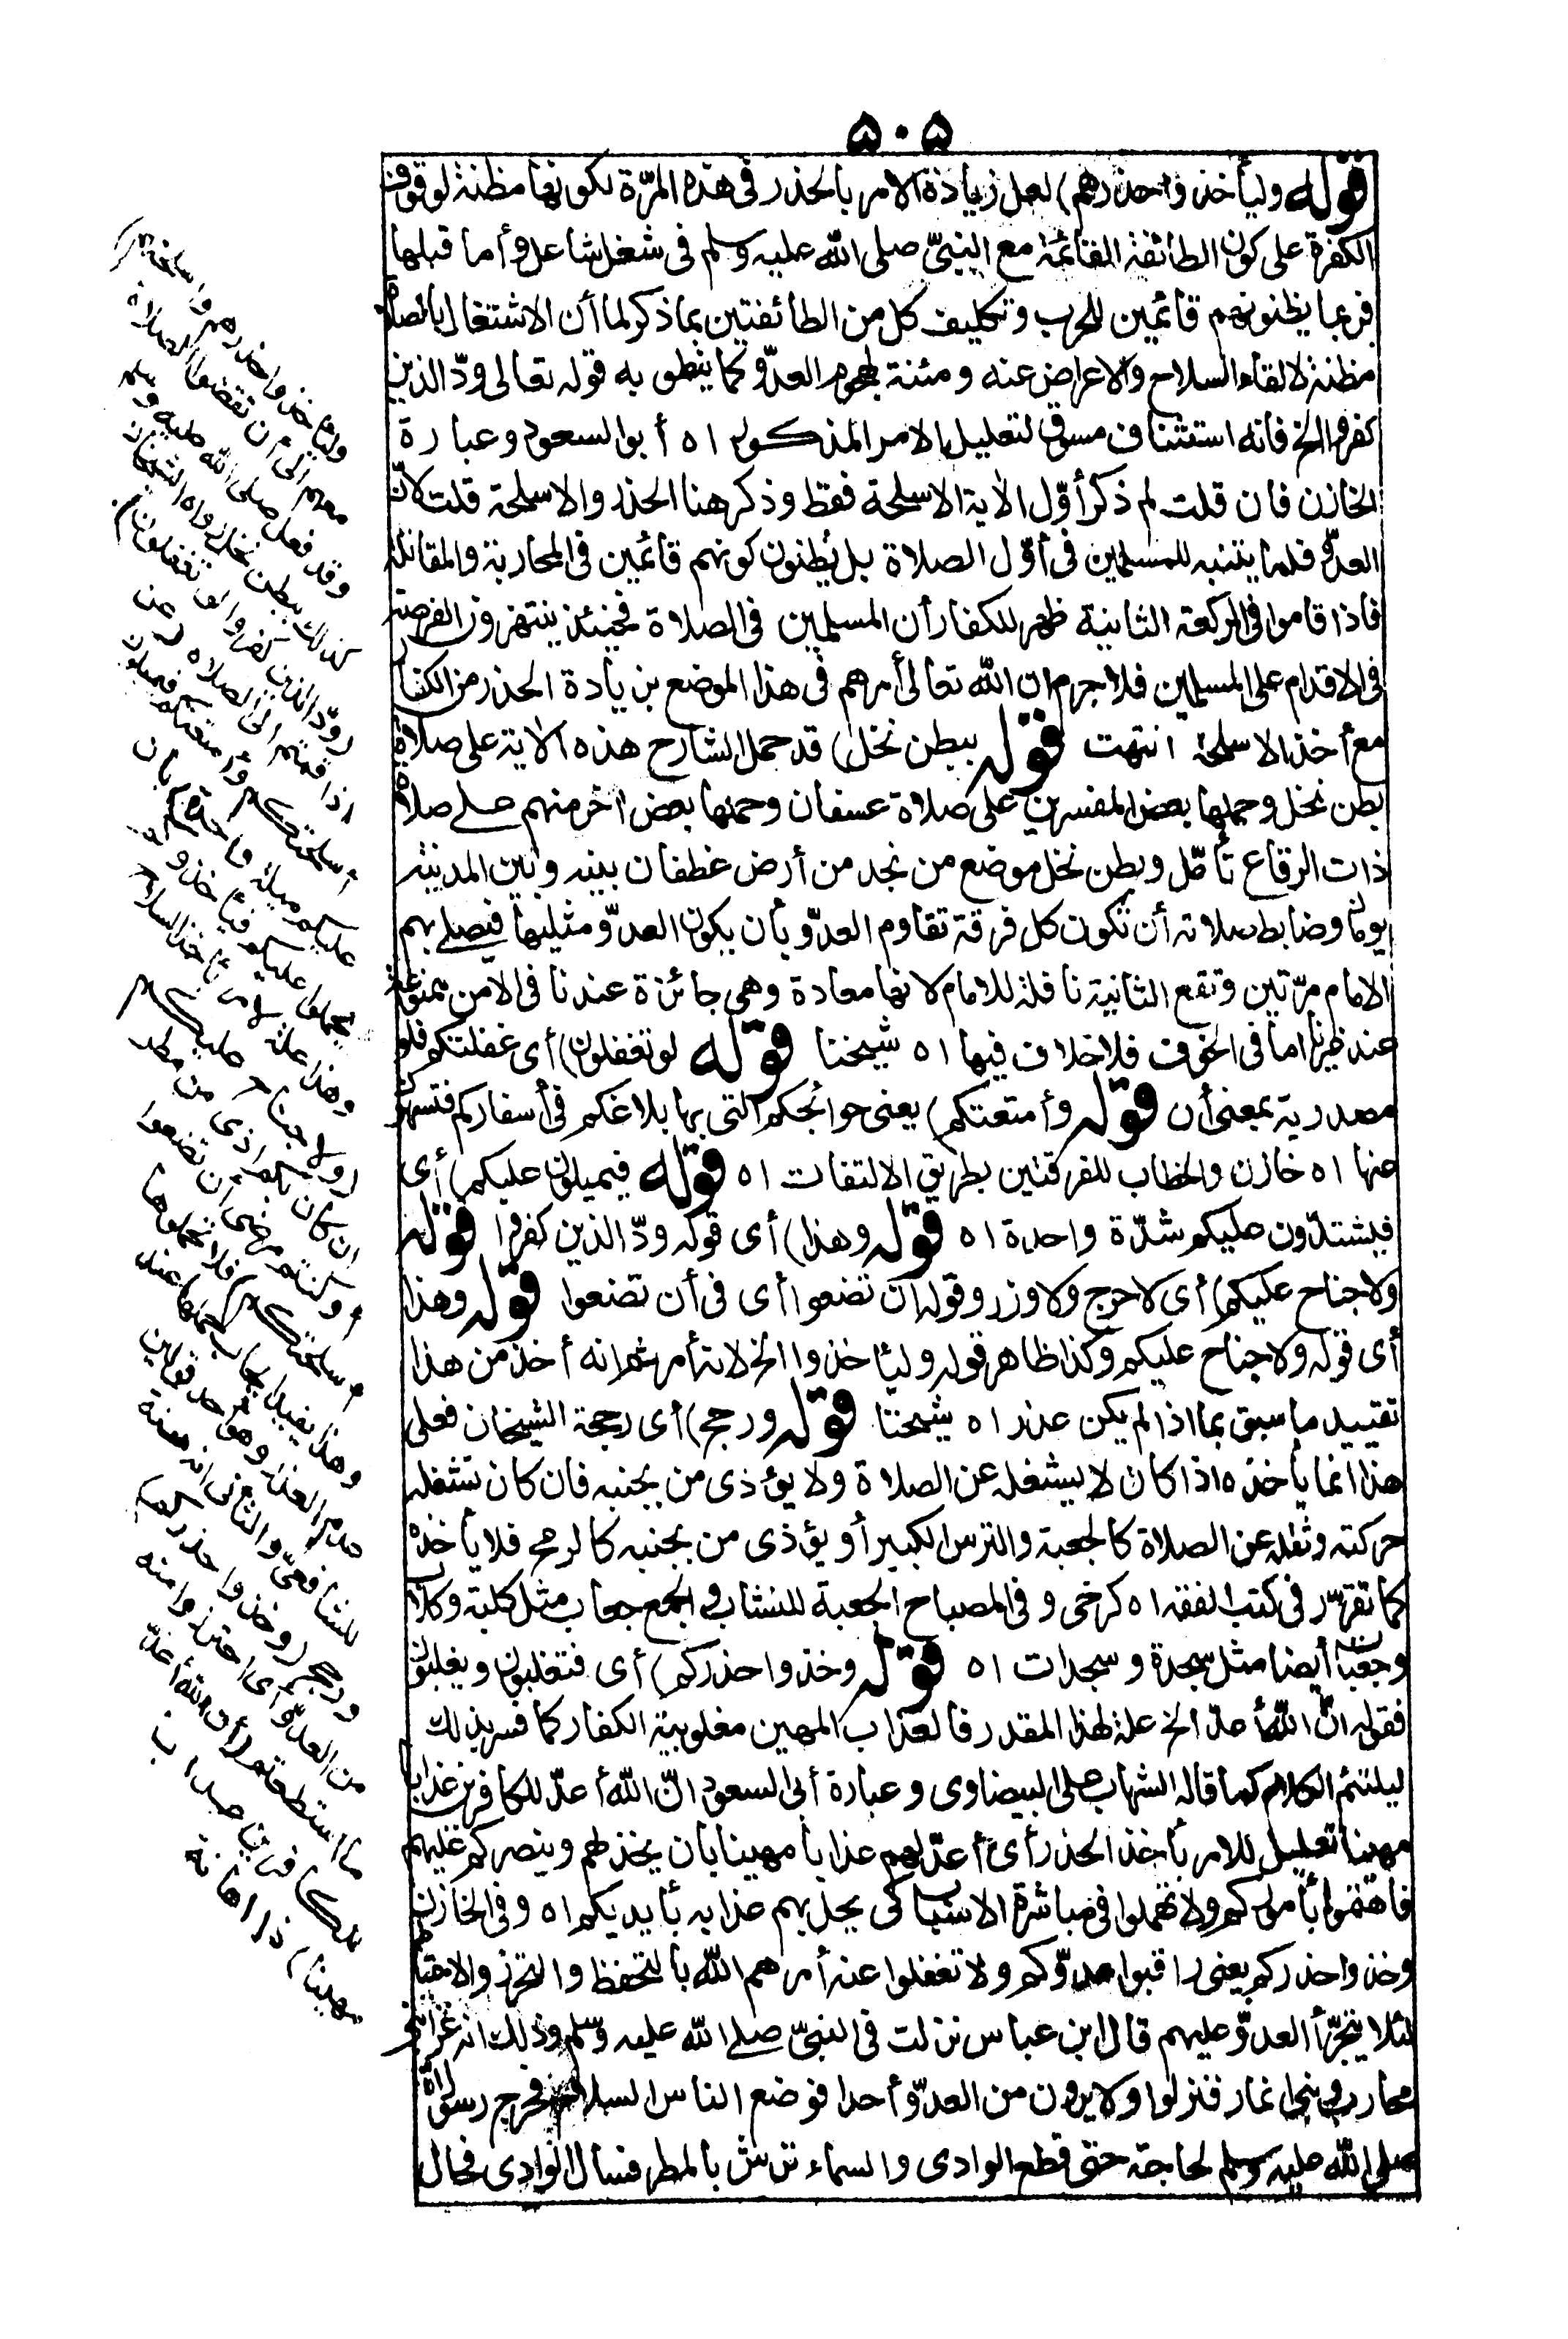 ٥٠٥
قوله وليأخذوا حذرهم) لعل زيادة الامر بالحذر فى هذه المرّة لكونها مظنة لوقوف
الكفرة على كون الطائفة القائمة مع النبىّ صلى الله عليه وسلم فى شغل شاغل وأما قبلها
فربما يظنونهم قائمين للحرب وتكليف كل من الطائفتين بما ذكر لما أن الاشتغال بالصلاة
مظنة لالقاء السلاح والاعراض عنه ومئنة لهجوم العدوّ كما ينطق به قوله تعالى ودّ الذين
كفروا الخ فانه استئناف مسوق لتعليل الامر المذكور اه أبو السعود وعبارة
الخازن فان قلت لم ذكر أوّل الآية الاسلحة فقط وذكر هنا الحذر والاسلحة قلت لانّ
العدوّ قلما يتنبه للمسلمين فى أوّل الصلاة بل يظنون كونهم قائمين فى المحاربة والمقاتلة
فاذا قاموا فى الركعة الثانية ظهر للكفار أن المسلمين فى الصلاة فحينئذ ينتهزون الفرصة
فى الاقدام على المسلمين فلا جرم ان الله تعالى أمرهم فى هذا الموضع بزيادة الحذر من الكفار
مع أخذ الاسلحة انتهت قوله ببطن نخل) قد حمل الشارح هذه الآية على صلاة
بطن نخل وحملها بعض المفسرين على صلاة عسفان وحملها بعض آخر منهم على صلاة
ذات الرقاع تأمّل وبطن نخل موضع من نجد من أرض غطفان بينه وبين المدينة
يومان وضابط صلاته أن تكون كل فرقة تقاوم العدوّ بأن يكون العدوّ مثليها فيصلى بهم
الامام مرّتين وتقع الثانية نافلة للامام لانها معادة وهى جائزة عندنا فى الامن ممنوعة
عند غيرنا اما فى الخوف فلا خلاف فيها اه شيخنا قوله لو تغفلون) أى غفلتكم فلو
مصدرية بمعنى أن قوله وأمتعتكم) يعنى حوائجكم التى بها بلاغكم فى أسفاركم فتسهون
عنها اه خازن والخطاب للفرقتين بطريق الالتفات اه قوله فيميلون عليكم) أى
فيشتدّون عليكم شدّة واحدة اه قوله وهذا) أى قوله ودّ الذين كفروا قوله
ولا جناح عليكم) أى لا حرج ولا وزر وقوله ان تضعوا أى فى أن تضعوا قوله وهذا
أى قوله ولا جناح عليكم وكذا ظاهر قوله وليأخذوا الخ لانه أمر ثم انه أخذ من هذا
تقييد ما سبق بما اذا لم يكن عذر اه شيخنا قوله ورجح) أى رجحه الشيخان فعلى
هذا انما يأخذه اذا كان لا يشغله عن الصلاة ولا يؤذى من بجنبه فان كان تشغله
حركته وثقله عن الصلاة كالجعبة والترس الكبير أو يؤذى من بجنبه كالرمح فلا يأخذه
كما تقرّر فى كتب الفقه اه كرخى وفى المصباح الجعبة للنشاب والجمع جعاب مثل كلبة وكلاب
وجعبات أيضا مثل سجدة وسجدات اه قوله وخذوا حذركم) أى فتغلبون ويغلبون
فقوله انّ الله أعدّ الخ علة لهذا المقدر فالعذاب المهين مغلوبية الكفار كما فسر بذلك
ليلتئم الكلام كما قاله الشهاب على البيضاوى وعبارة أبى السعود انّ الله أعدّ للكافرين عذابا
مهينا تعليل للامر بأخذ الحذر أى أعدّ لهم عذابا مهينا بأن يخذلهم وينصركم عليهم
فاهتموا بأموركم ولا تهملوا فى مباشرة الاسباب كى يحل بهم عذابه بأيديكم اه وفى الخازن
وخذوا حذركم يعنى راقبوا عدوّكم ولا تغفلوا عنه أمرهم الله بالتحفظ والتحرّز والاحتياط
لئلا يتجرّأ العدوّ عليهم قال ابن عباس نزلت فى النبىّ صلى الله عليه وسلم وذلك انه غزا بنى
محارب وبنى انمار فنزلوا ولا يرون من العدوّ أحدا فوضع الناس السلاح فخرج رسول الله
صلى الله عليه وسلم لحاجته حتى قطع الوادى والسماء ترش بالمطر فسال الوادى فحال
وليأخذوا حذرهم وأسلحتهم
معهم الى أن تقضوا الصلاة
وقد فعل صلى الله عليه وسلم
كذلك ببطن نخل رواه الشيخان
(ودّ الذين كفروا لو تغفلون)
اذا قمتم الى الصلاة (عن
أسلحتكم وأمتعتكم فيميلون
عليكم ميلة واحدة) بأن
يحملوا عليكم فيأخذوكم
وهذا علة الامر بأخذ السلاح
(ولا جناح عليكم
ان كان بكم أذى من مطر
أو كنتم مرضى أن تضعوا
أسلحتكم) فلا تحملوها
وهذا يفيد ايجاب حملها عند
عدم العذر وهو أحد قولين
للشافعىّ والثانى انه سنة
ورجح (وخذوا حذركم)
من العدوّ أى احترزوا منه
ما استطعتم (ان الله أعدّ
للكافرين عذابا
مهينا) ذا اهانة